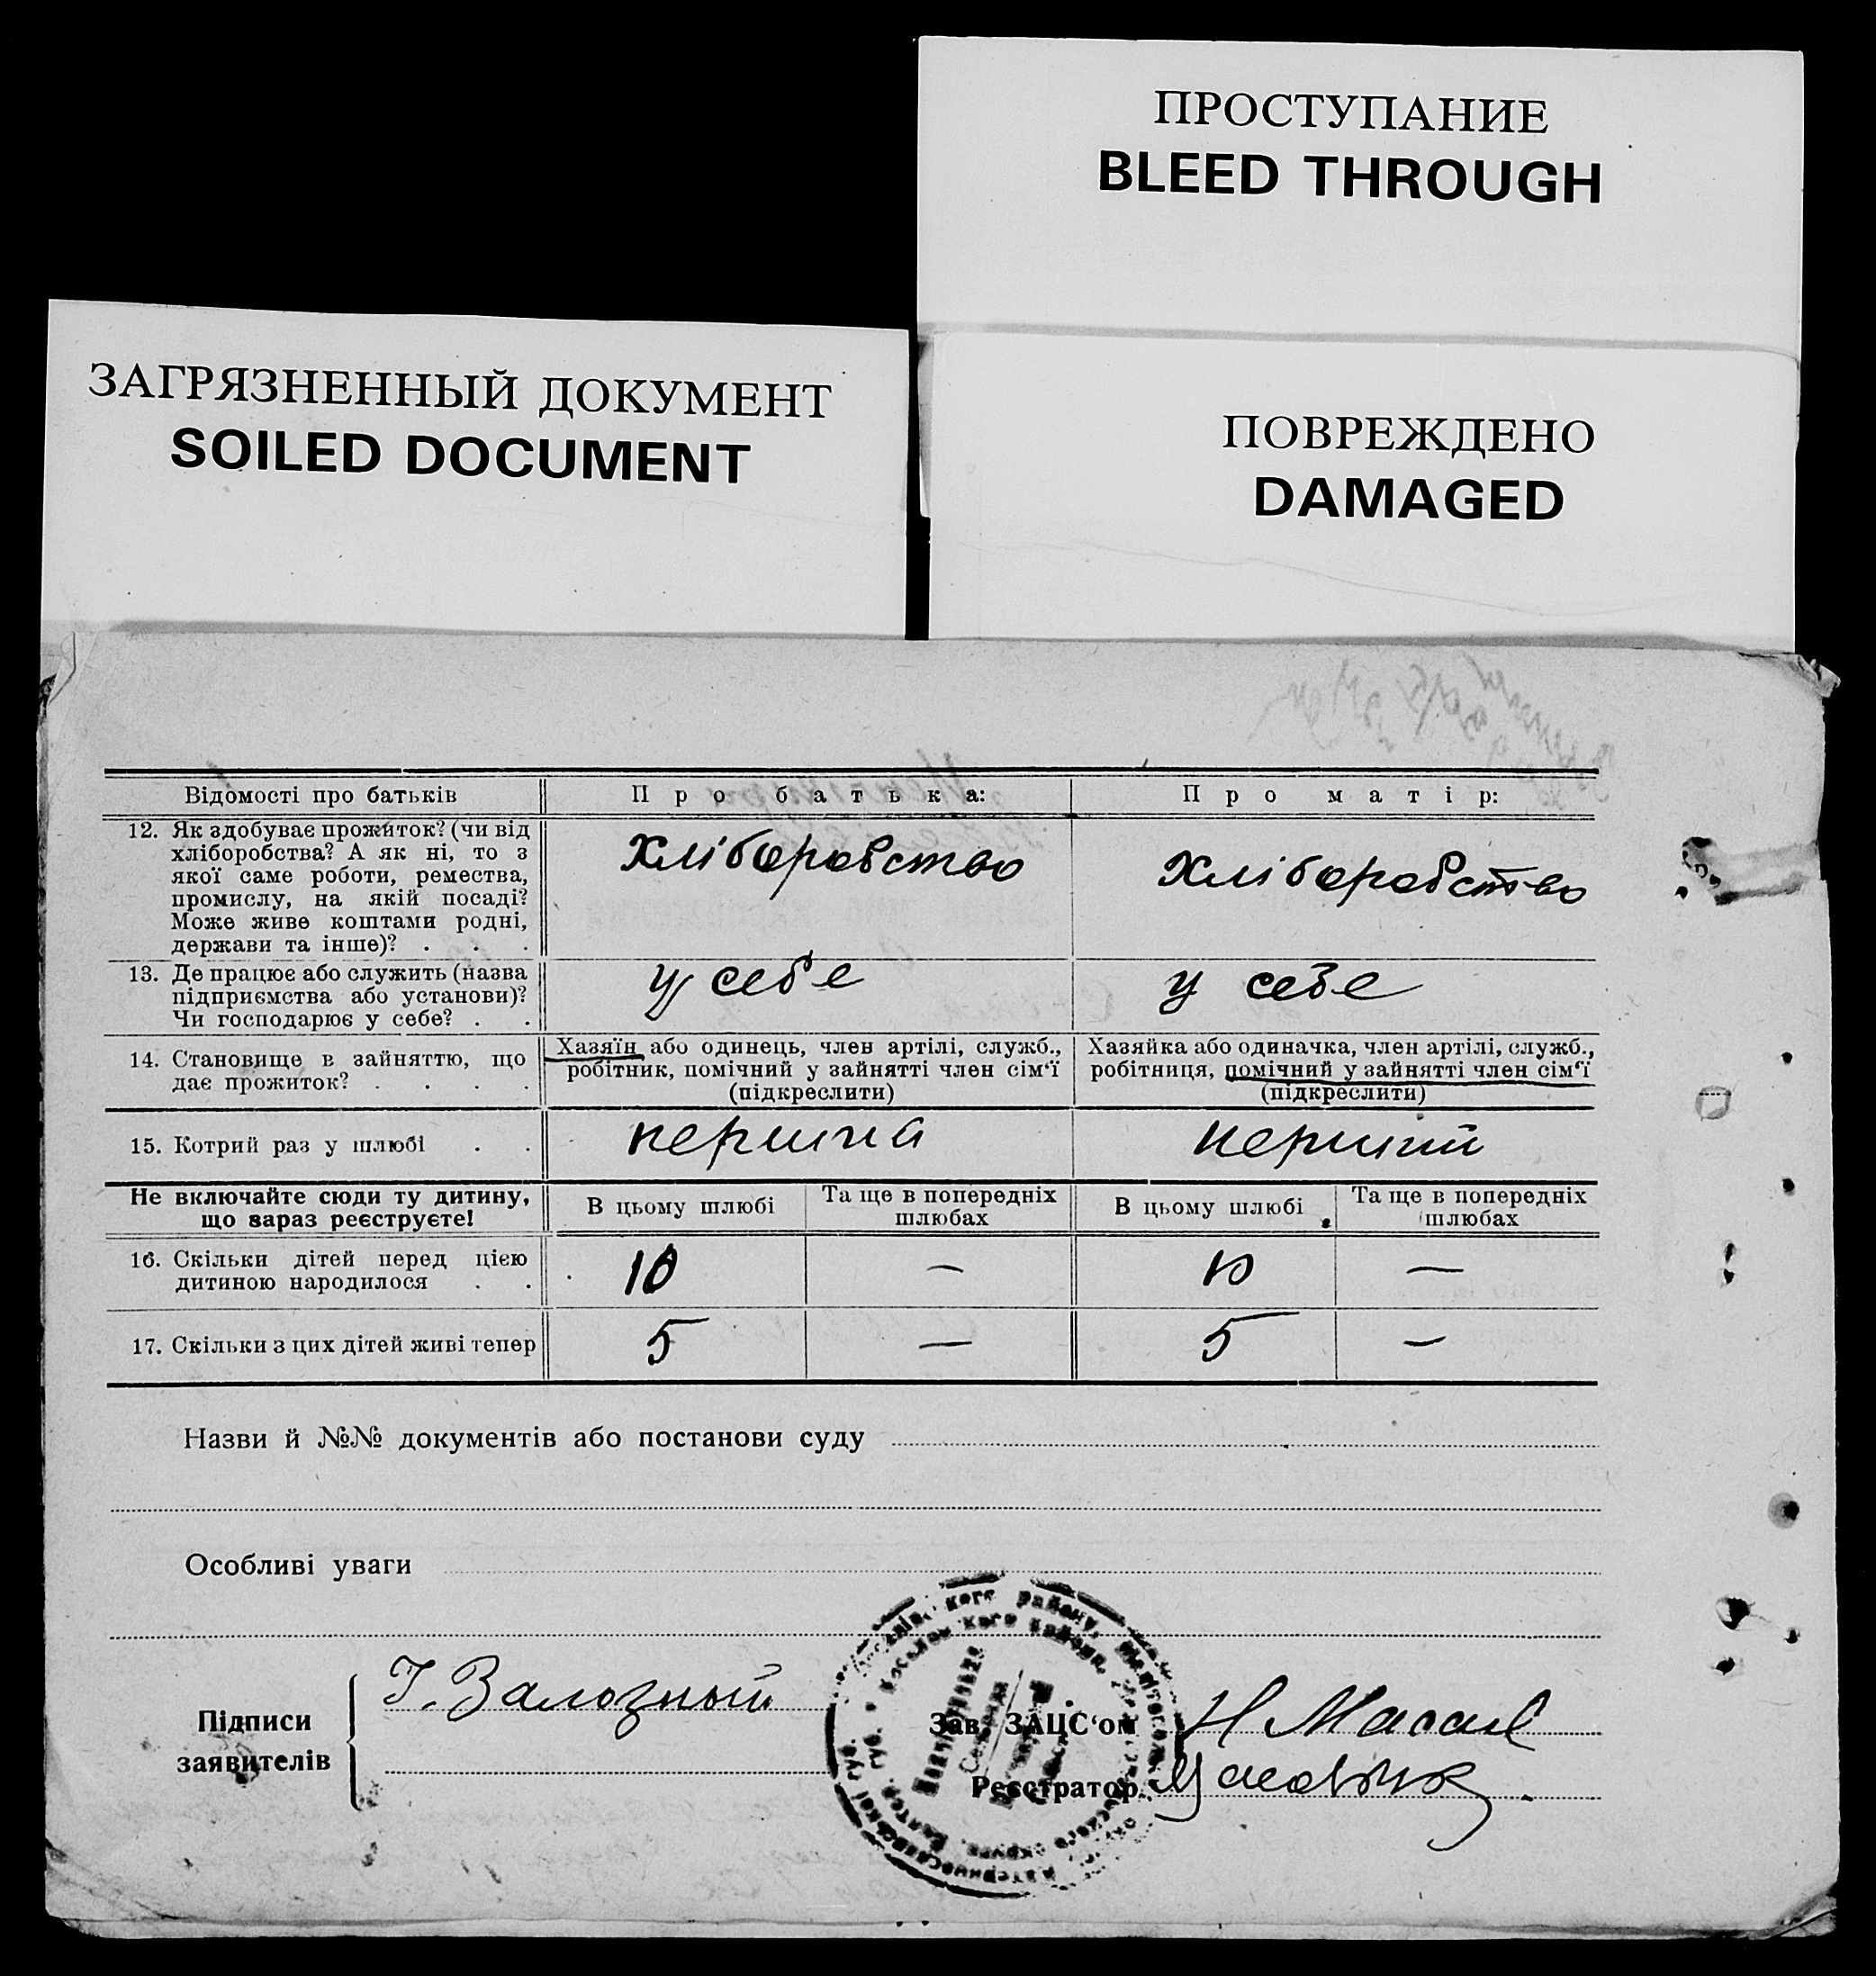 ПРОСТУПАНИЕ
BLEED THROUGH
ЗАГРЯЗНЕННЫЙ ДОКУМЕНТ
SOILED DOCUMENT
ПОВРЕЖДЕНО
DAMAGED
Відомості про батьків
Про батька:
Про матір:
12. Як здобуває прожиток? (чи від
хліборобства? А як ні, то з
якої саме роботи, ремества,
промислу, на якій посаді?
Може живе коштами родні,
держави та інше)? . . .
Хліборобство
Хліборобство
13. Де працює або служить (назва
підприємства або установи)?
Чи господарює у себе? . .
у себе
у себе
14. Становище в зайняттю, що
дає прожиток? . . . .
Хазяїн або одинець, член артілі, служб.,
робітник, помічний у зайнятті член сім'ї
(підкреслити)
Хазяйка або одиначка, член артілі, служб.,
робітниця, помічний у зайнятті член сім'ї
(підкреслити)
15. Котрий раз у шлюбі . .
перший
Не включайте сюди ту дитину,
що зараз реєструєте!
В цьому шлюбі
Та ще в попередніх
шлюбах
В цьому шлюбі
Та ще в попередніх
шлюбах
16. Скільки дітей перед цією
дитиною народилося . .
10
—
10
—
17. Скільки з цих дітей живі тепер
5
—
5
—
Назви й №№ документів або постанови суду
Особливі уваги
Підписи
заявителів
І. Залозный
Зав. ЗАЦС'ом
Реєстратор